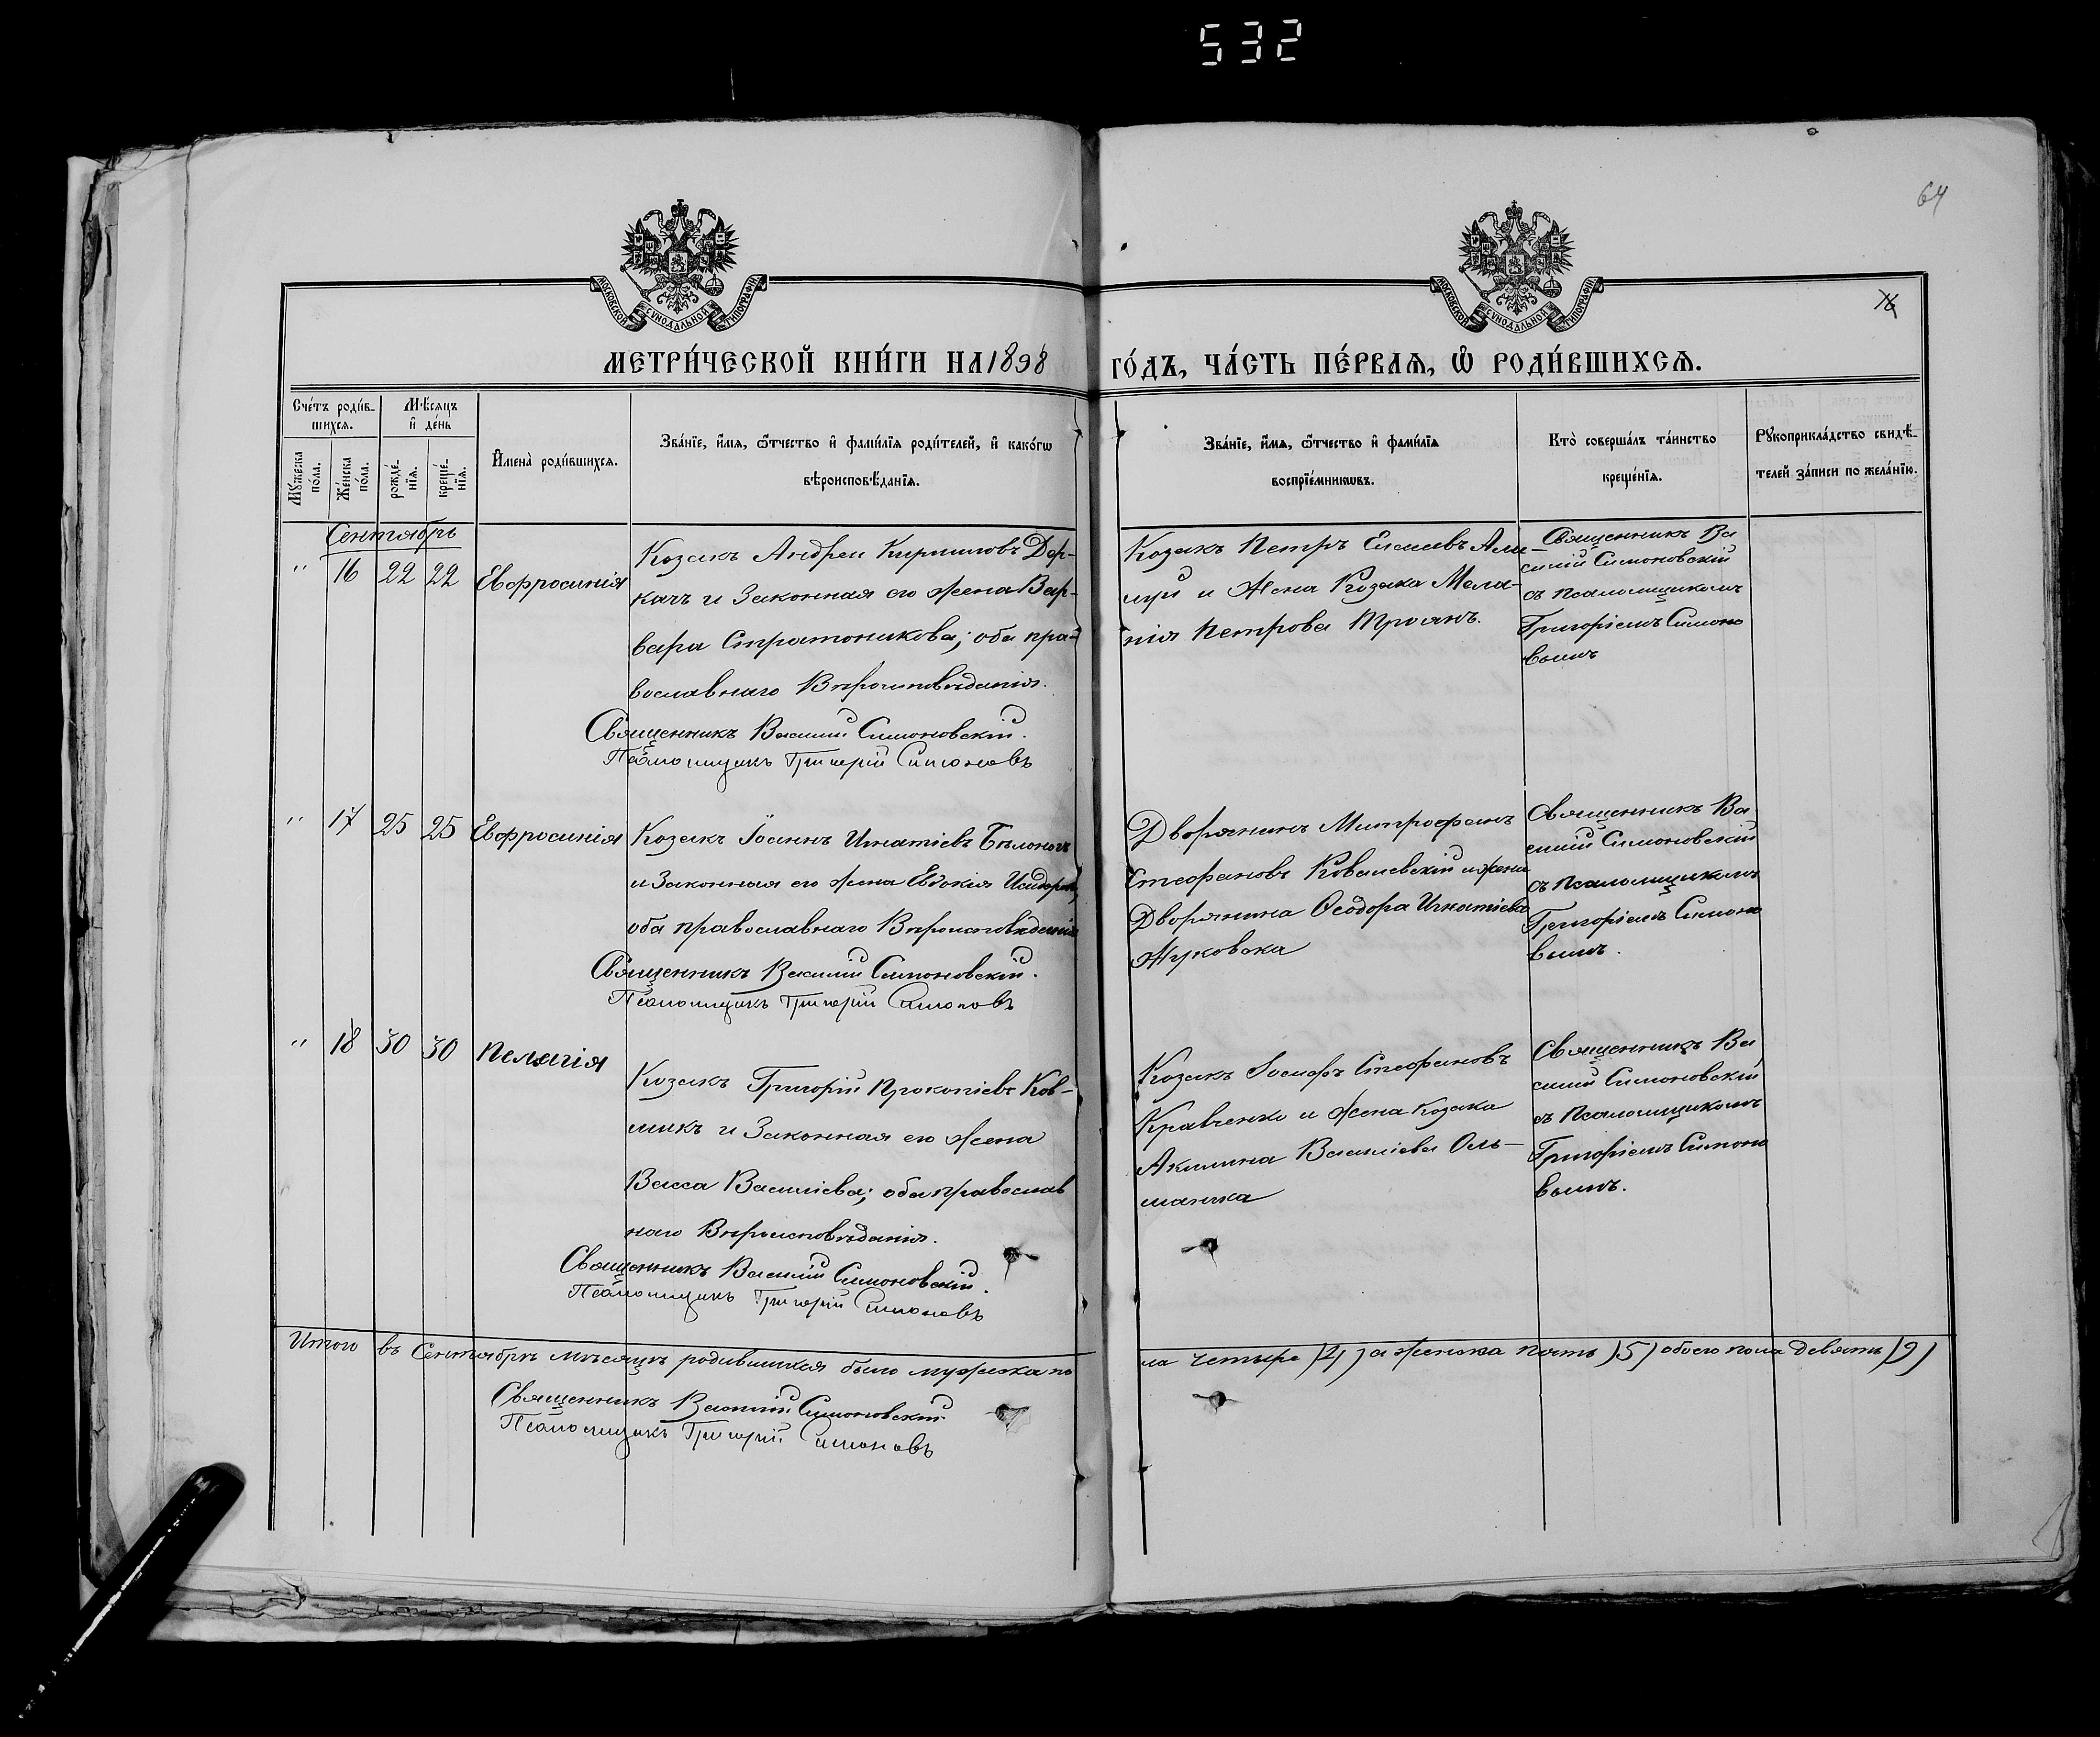 532
64
МОСКОВСКОЙ СѴНОДАЛЬНОЙ ТИПОГРАФІИ
МОСКОВСКОЙ СѴНОДАЛЬНОЙ ТИПОГРАФІИ
МЕТРИ́ЧЕСКОЙ КНИ́ГИ НА 1898
ГО́ДЪ, ЧА́СТЬ ПЕ́РВАѦ, Ѡ҆ РОДИ́ВШИХСѦ.
Сче́тъ роди́в-
шихсѧ.
Мꙋ́жеска
по́ла.
Же́нска
по́ла.
Мѣ́сяцъ
и҆ де́нь
рожде́-
нїѧ.
креще́-
нїѧ.
И҆мена̀ роди́вшихсѧ.
Зва́нїе, и҆́мѧ, ѻ҆́тчество и҆ фами́лїѧ роди́телей, и҆ како́гѡ
вѣроисповѣ́данїѧ.
Зва́нїе, и҆́мѧ, ѻ҆́тчество и҆ фами́лїѧ
воспрїе́мникѡвъ.
Кто̀ соверша́лъ та́инство
креще́нїѧ.
Рꙋкоприкла́дство свидѣ́-
телей за́писи по жела́нїю.
Сентябрь
" 16 22 22 Евфросинія
Козакъ Андрей Кирилловъ Дер-
качъ и Законная его жена Вар-
вара Стратоникова; оба пра-
вославнаго Вѣроисповѣданія.
Священникъ Василій Симоновскій.
Псаломщикъ Григорій Симоновъ
Козакъ Петръ Елисеевъ
и Жена Козака Мела-
нія Петрова Троянъ.
Священникъ Ва
силій Симоновскій
съ Псаломщикомъ
Григоріемъ Симоно
вымъ
" 17 25 25 Евфросинія
Козакъ Іоаннъ Игнатіевъ Бѣлоногъ
и Законная его жена Евдокія Исидорова,
оба православнаго Вѣроисповѣданія
Священникъ Василій Симоновскій.
Псаломщикъ Григорій Симоновъ
Дворянинъ Митрофанъ
Стефановъ Ковалевскій и жена
Дворянина Ѳеодора Игнатіева
Жуковска
Священникъ Ва
силій Симоновскій
съ Псаломщикомъ
Григоріемъ Симоно
вымъ.
" 18 30 30 Пелагія
Козакъ Григорій Прокопіевъ Ков-
шикъ и Законная его жена
Васса Василіева; оба православ
наго Вѣроисповѣданія.
Священникъ Василій Симоновскій.
Псаломщикъ Григорій Симоновъ
Козакъ Іосифъ Стефановъ
Кравченко и жена Козака
Акилина Василіева Оль-
шанска
Священникъ Ва
силій Симоновскій
съ Псаломщикомъ
Григоріемъ Симоно
вымъ.
Итого въ Сентябрѣ мѣсяцѣ родившихся было мужска по
ла четыре (4) а женска пять (5) обоего пола девять (9)
Священникъ Василій Симоновскій.
Псаломщикъ Григорій Симоновъ